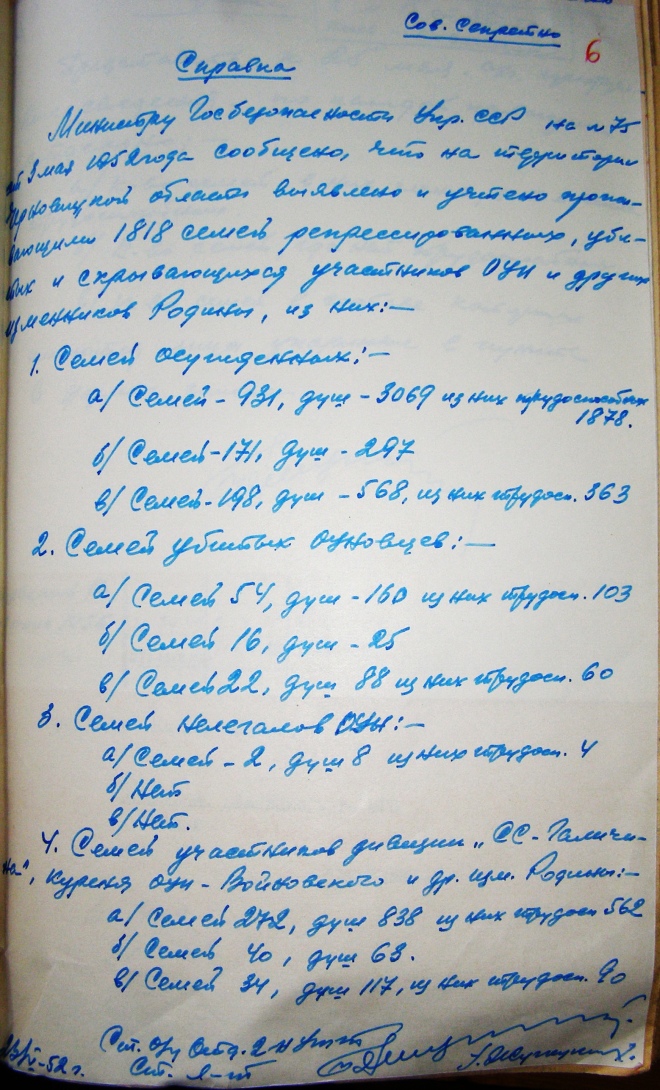 Сов. Секретно
6
Справка
Министру Госбезопасности Укр. ССР на № 75
от 9 мая 1952 года сообщено, что на территории
Черновицкой области выявлено и учтено прожи-
вающими 1818 семей репрессированных, уби-
тых и скрывающихся участников ОУН и других
изменников Родины, из них:—
1. Семей осужденных:—
а/ Семей - 931, душ - 3069 из них трудоспособных
1878.
б/ Семей - 171, душ - 297
в/ Семей - 198, душ - 568, из них трудосп. 363
2. Семей убитых оуновцев:—
а/ Семей 54, душ - 160 из них трудосп. 103
б/ Семей 16, душ - 25
в/ Семей 22, душ 88 из них трудосп. 60
3. Семей нелегалов ОУН:—
а/ Семей - 2, душ 8 из них трудосп. 4
б/ Нет
в/ Нет.
4. Семей участников дивизии „СС - Галичи-
на", куреня оун - Войновского и др. изм. Родины:—
а/ Семей 272, душ 838 из них трудосп 562
б/ Семей 40, душ 63.
в/ Семей 34, душ 117, из них трудосп. 90
Ст. О/у Отд. 2-Н
Ст. л-т
-52 г.